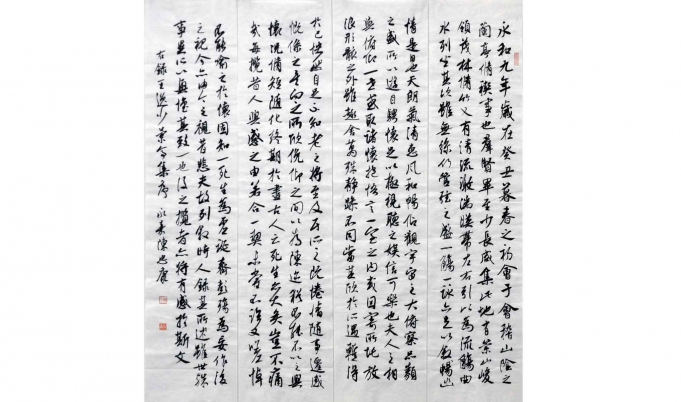 永和九年歲在癸丑暮春之初會于會稽山陰之
蘭亭脩禊事也羣賢畢至少長咸集此地有崇山峻
領茂林脩竹又有清流激湍暎帶左右引以為流觴曲
水列坐其次雖無絲竹管弦之盛一觴一詠亦足以暢叙幽
情是日也天朗氣清惠風和暢仰觀宇宙之大俯察品類
之盛所以遊目騁懷足以極視聽之娛信可樂也夫人之相
與俯仰一世或取諸懷抱悟言一室之內或因寄所託放
浪形骸之外雖趣舍萬殊靜躁不同當其欣於所遇暫得
於己快然自足不知老之將至及其所之既惓情隨事遷感
慨係之矣向之所欣俛仰之間以為陳迹猶不能不以之興
懷況脩短隨化終期於盡古人云死生亦大矣豈不痛
哉每攬昔人興感之由若合一契未嘗不臨文嗟悼
不能喻之於懷固知一死生為虛誕齊彭殤為妄作後
之視今亦由今之視昔悲夫故列敘時人錄其所述雖世殊
事異所以興懷其致一也後之攬者亦將有感於斯文
右錄王逸少蘭亭集序 永嘉陳忠康